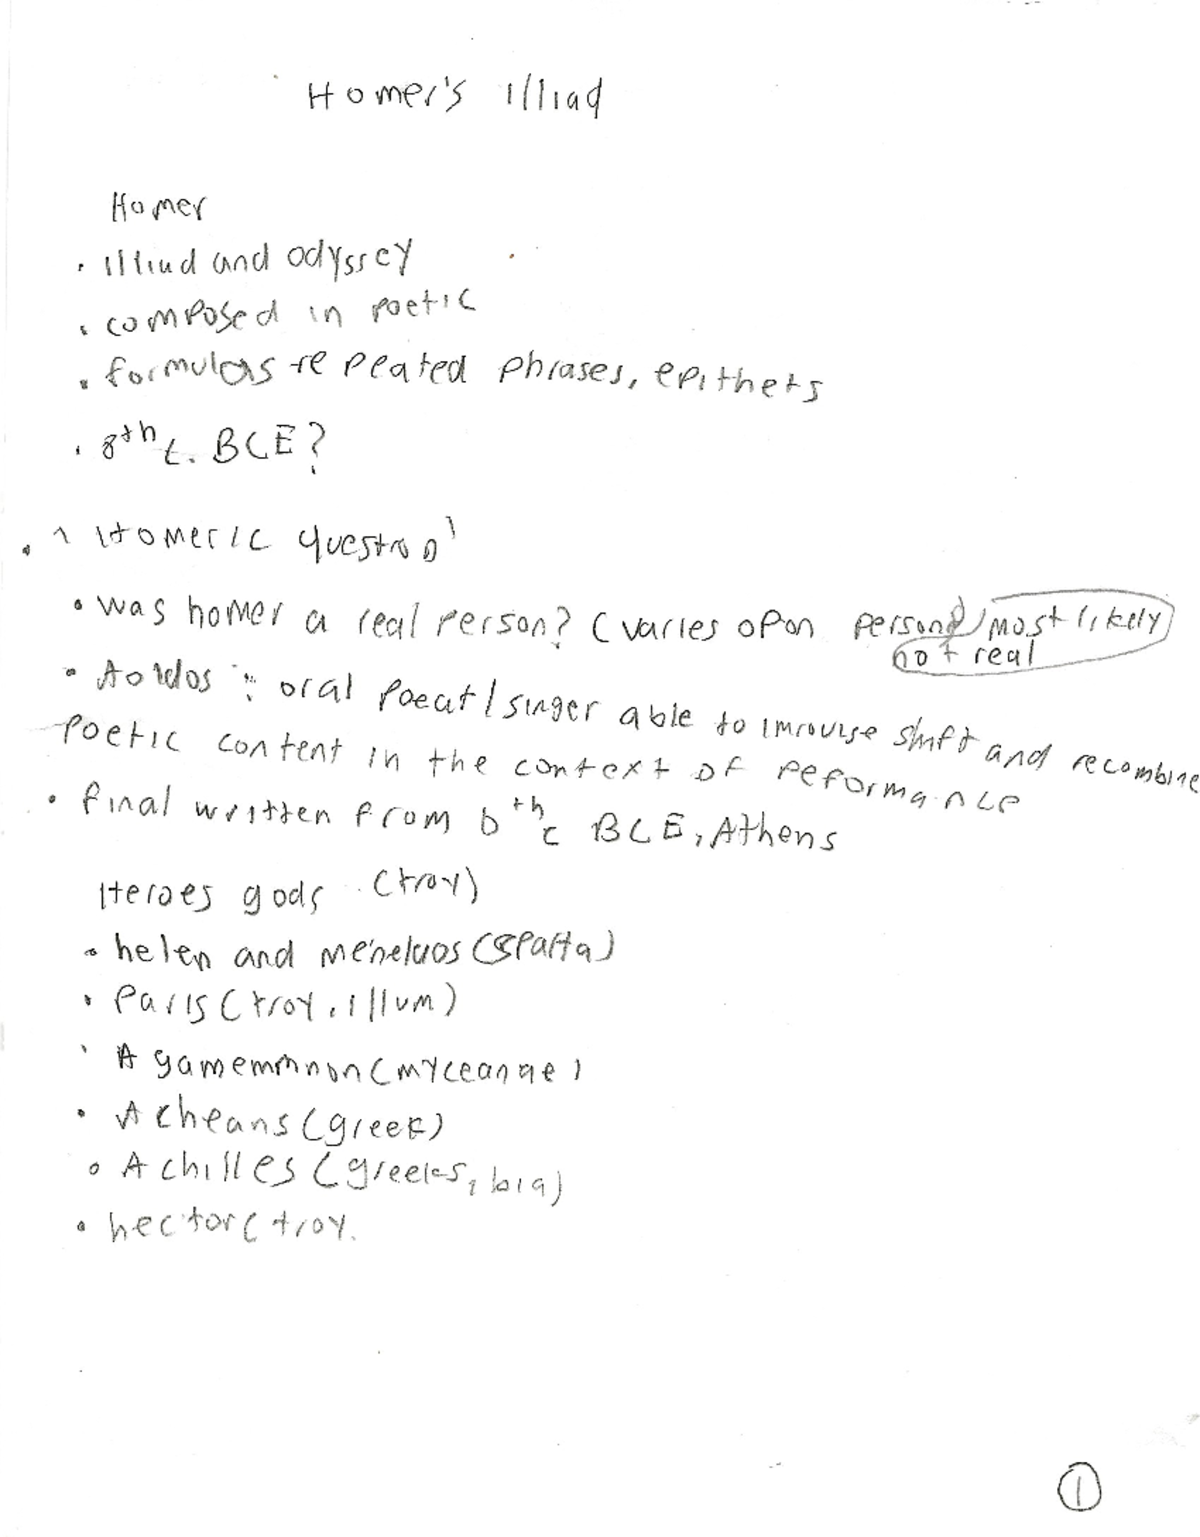 Homer's Illiad
Homer
• Illiad and odyssey
• composed in poetic
• formulas repeated phrases, epithets
• 8th c. BCE?
• 'Homeric question'
• was homer a real person? (varies opon person) most likely
not real
• Aoidos : oral poeat/singer able to imrovise shift and recombine
poetic content in the context of peformance
• final written from 6th c BCE, Athens
Heroes gods (troy)
• helen and menelaos (sparta)
• Paris (troy, illum)
• Agamemmnon (myceanae)
• Acheans (greek)
• Achilles (greeks, bia)
• hector (troy.
1